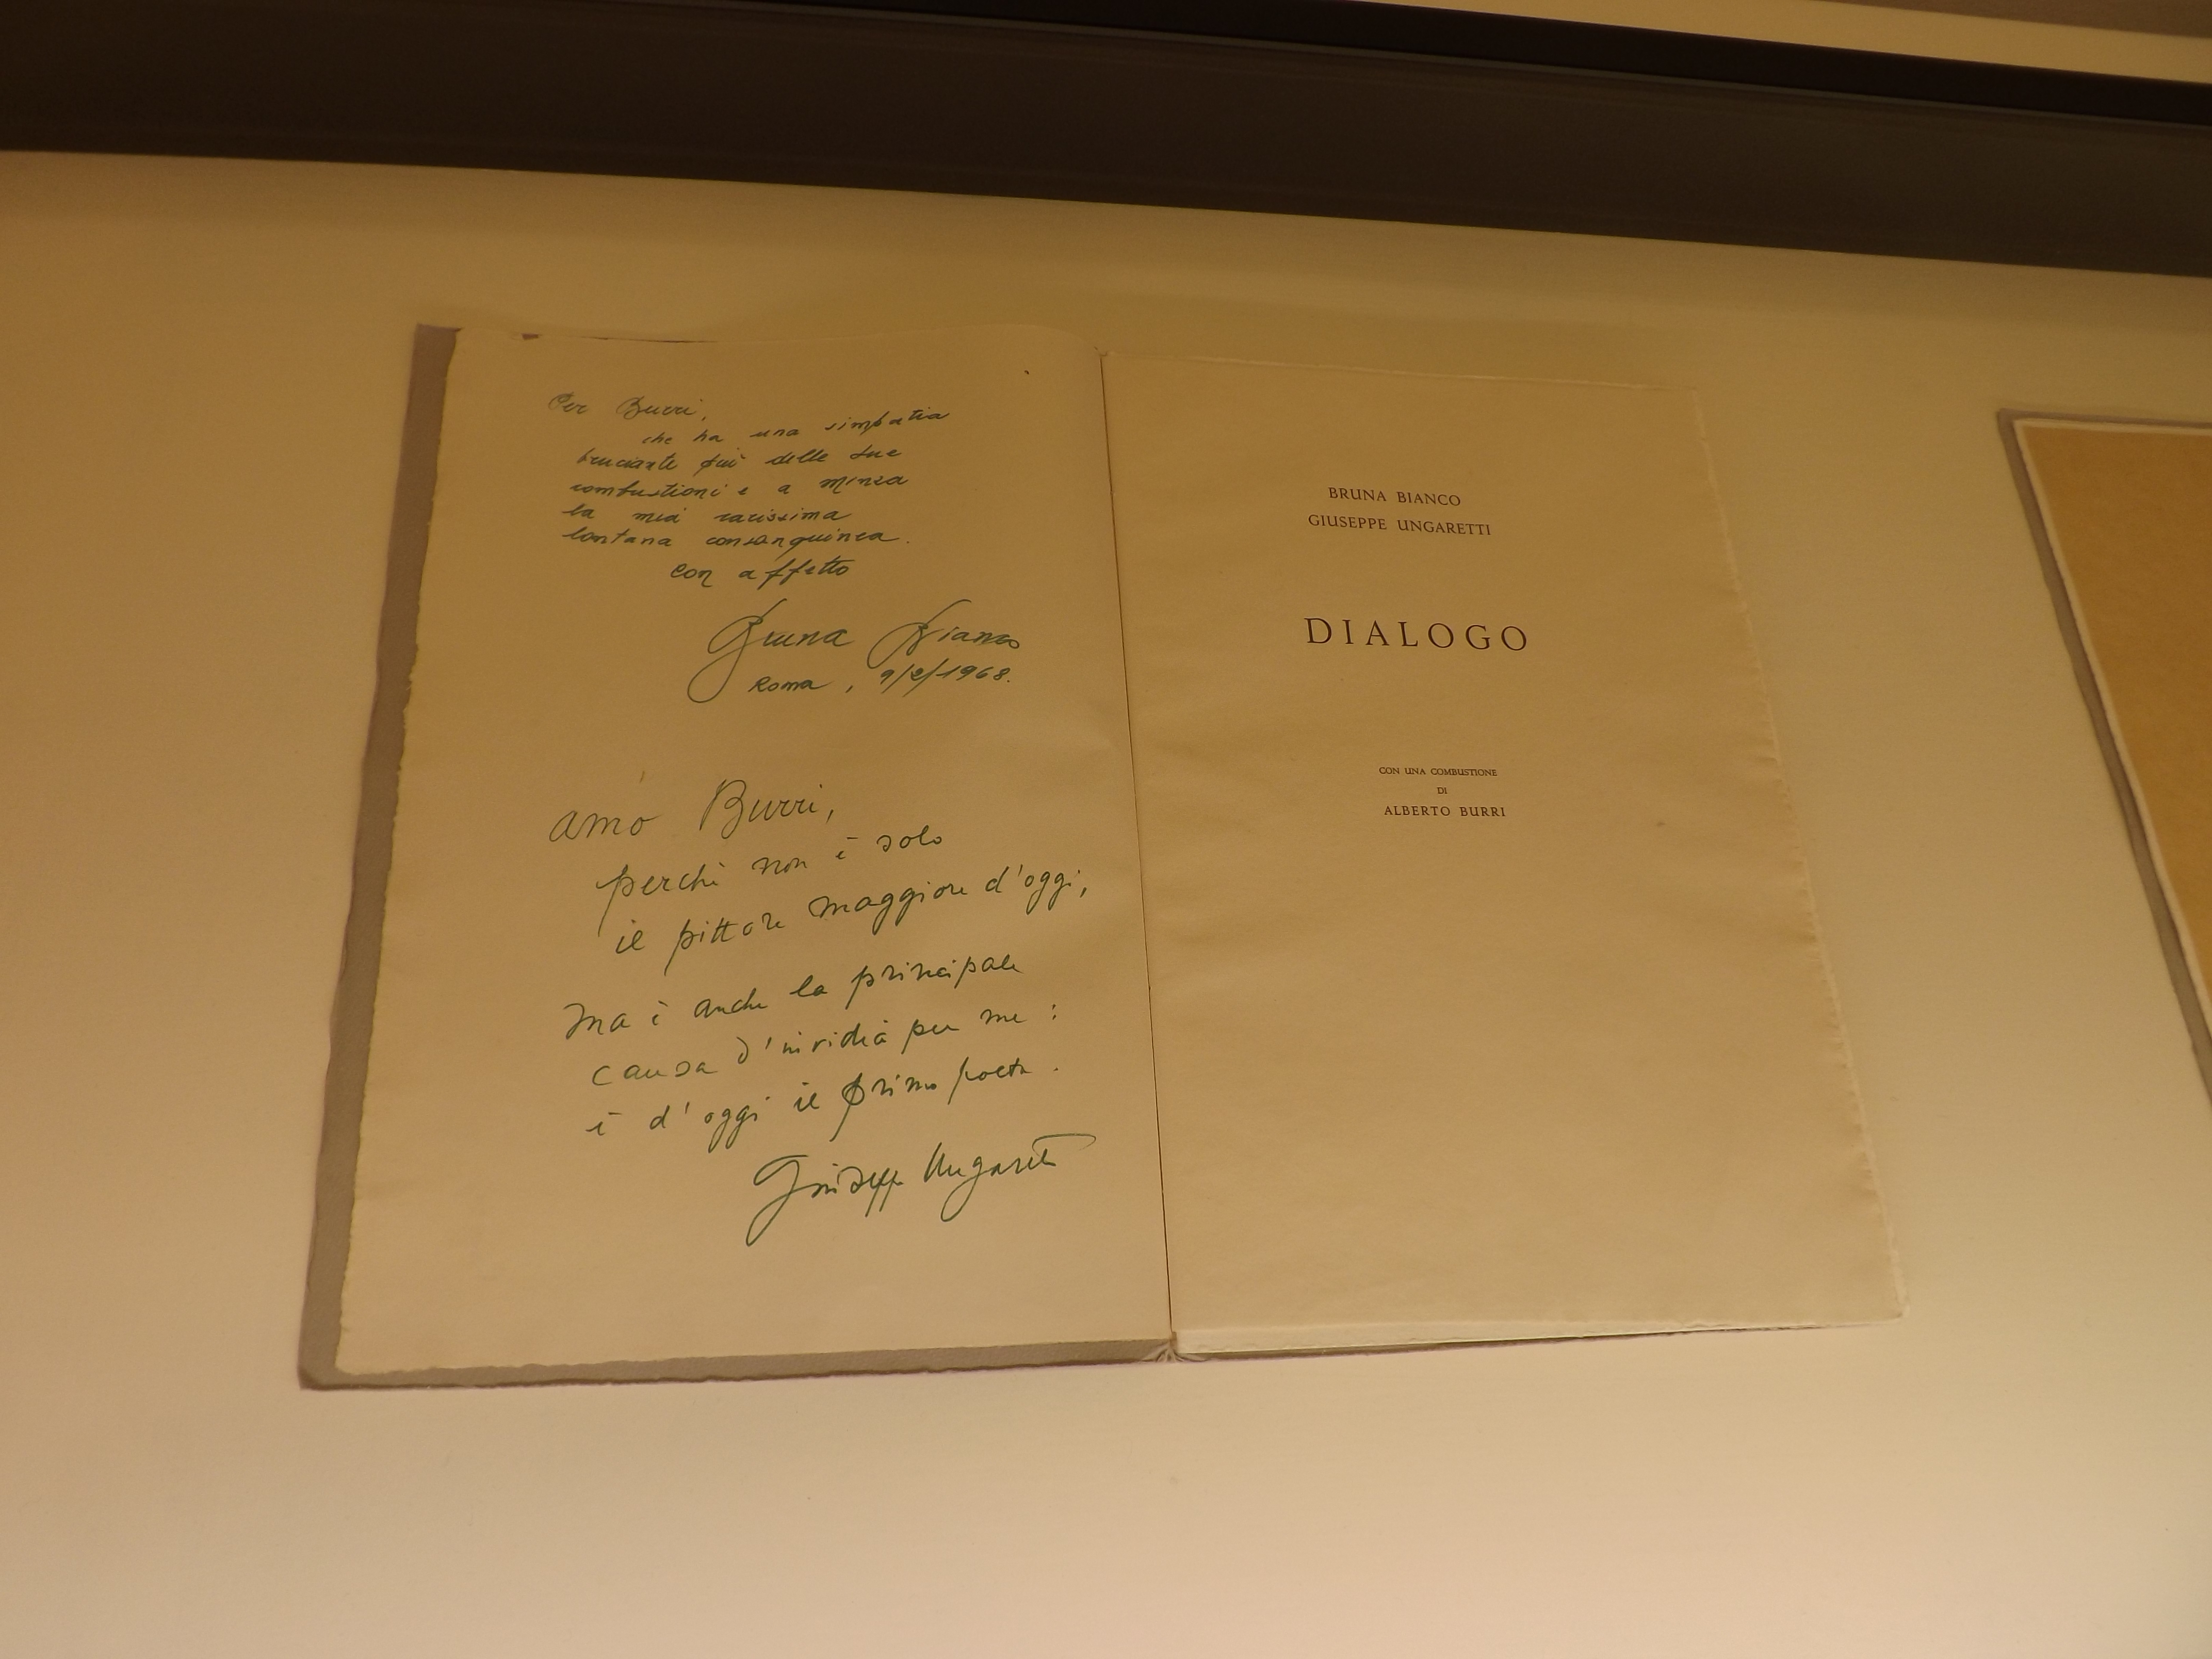 Per Burri,
che ha una simpatia
bruciante più delle sue
combustioni e a Minsa
la mia carissima
lontana consanguinea.
con affetto
Bruna Bianco
Roma, 9/2/1968.
amo Burri,
perchè non è solo
il pittore maggiore d'oggi,
ma è anche la principale
causa d'invidia per me:
è d'oggi il primo poeta.
Giuseppe Ungaretti
BRUNA BIANCO
GIUSEPPE UNGARETTI
DIALOGO
CON UNA COMBUSTIONE
DI
ALBERTO BURRI